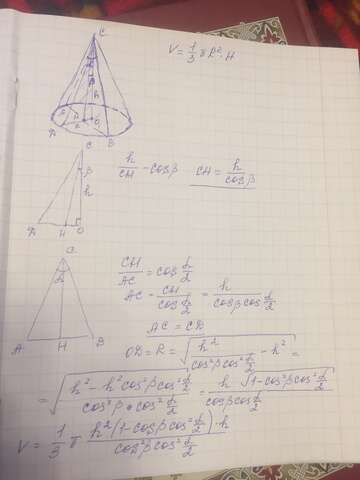 V = 1/3 π R² · H
C
β
h
A
O
B
C
β
h
h/CH = cos β   CH = h/cos β
H O
C
α
A H B
CH/AC = cos α/2
AC = CH/cos α/2 = h/cos β cos α/2
AC = CD
OD = R = √(h²/cos²β cos² α/2 - h²) =
= √(h² - h² cos²β cos² α/2 / cos²β · cos² α/2) = h √(1 - cos²β cos² α/2)/cos β cos α/2
V = 1/3 π h² (1 - cos β cos² α/2) · h/cos²β cos² α/2